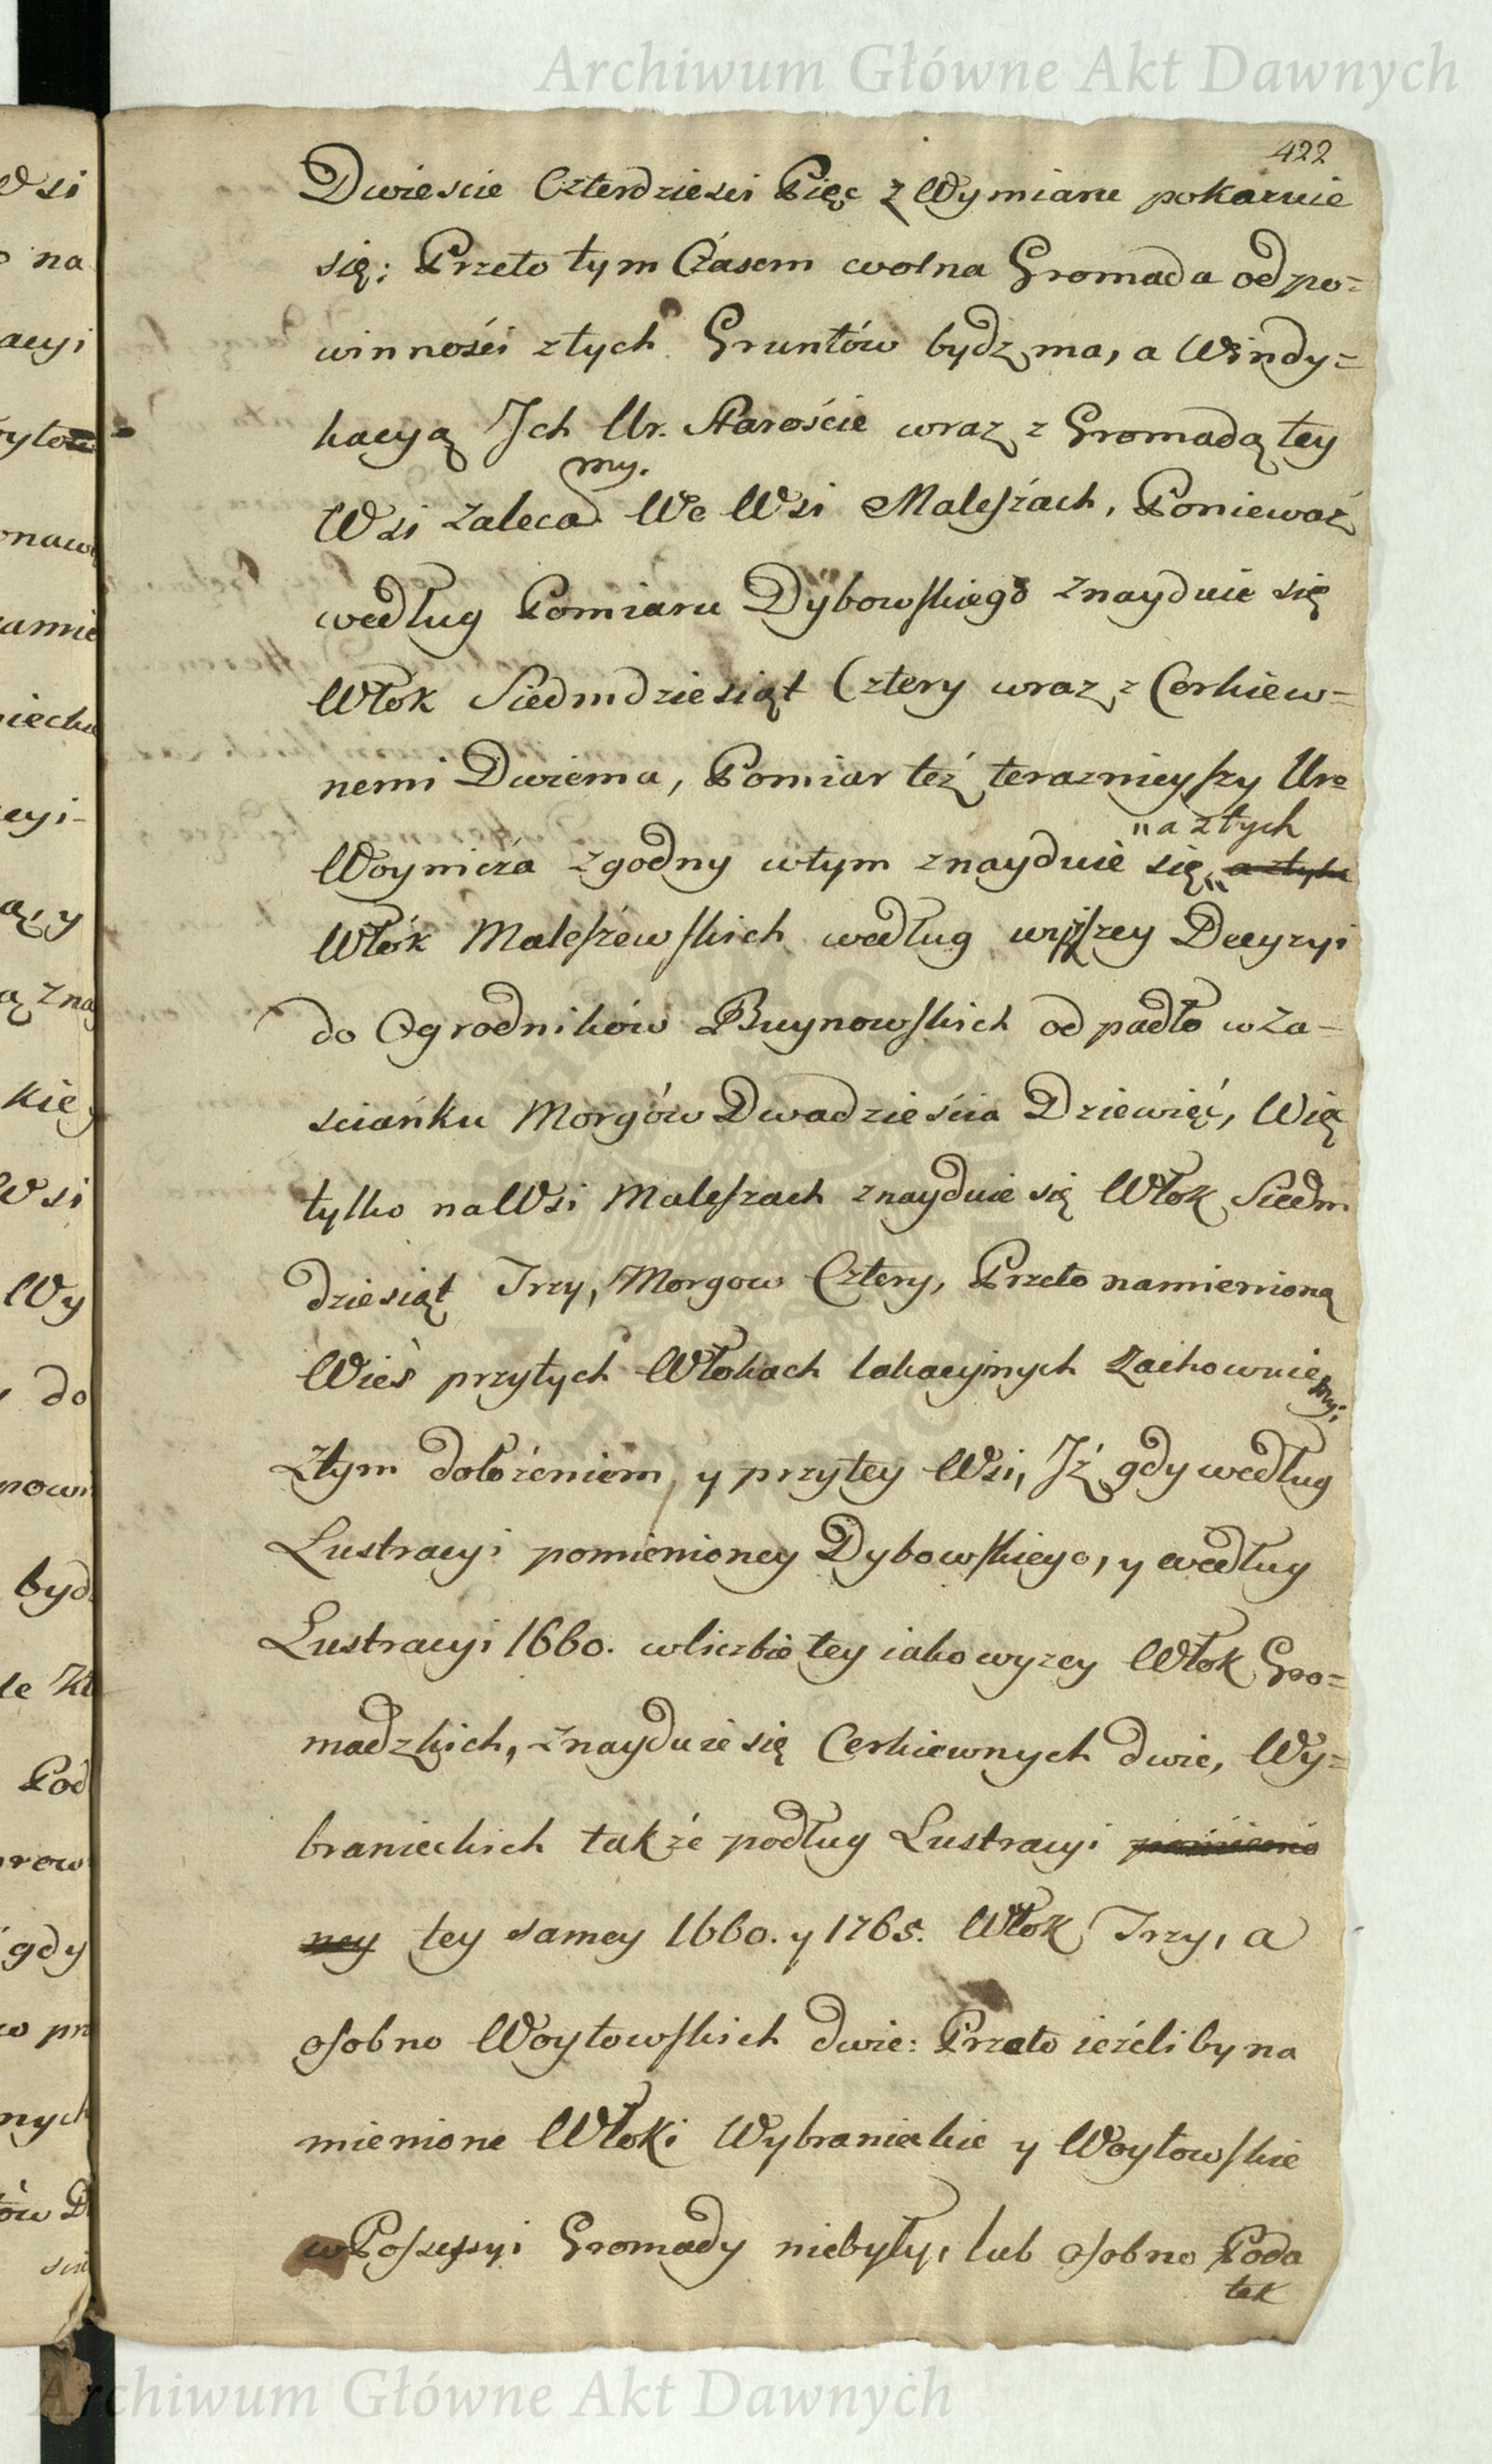 Archiwum Główne Akt Dawnych
422
Dwieście Czterdziesci Pięc z Wymiaru pokazuie
się: Przeto tym Czasem wolna Gromada od po=
winnośći z tych Gruntów bydz ma, a Windy=
kacyą Ich Ur. Staroście wraz z Gromadą tey
my.
Wsi zaleca We Wsi Maleszach, Ponieważ
według Pomiaru Dybowskiego znayduie się
Włok Siedmdziesiąt Cztery wraz z Cerkiew=
nemi Dwiema, Pomiar też teraznieyszy Uro
"a z tych
Woynicza zgodny w tym znayduie się " a z tych
Włók Maleszewskich według wyższey Decyzyi
do Ogrodników Buynowskich odpadło w Za=
sciańku Morgów Dwadzieścia Dziewięć, Więc
tylko na Wsi Maleszach znayduie się Włok Siedm
dziesiąt Trzy, Morgow Cztery, Przeto namienioną
Wieś przy tych Włokach lokacyjnych zachowuie
my;
Z tym dołożeniem y przy tey Wsi, Iż gdy według
Lustracyi pomienioney Dybowskiego, y według
Lustracyi 1660. w liczbie tey iako wyzey Włok Gro=
madzkich, znayduie się Cerkiewnych dwie, Wy=
branieckich także podług Lustracyi pomienio
ney tey samey 1660. y 1765. Włok Trzy, a
osobno Woytowskich dwie: Przeto ieżeli by na
mienione Włoki Wybranieckie y Woytowskie
w Possessyi Gromady nie były, lub osobno Poda
tek
Archiwum Główne Akt Dawnych